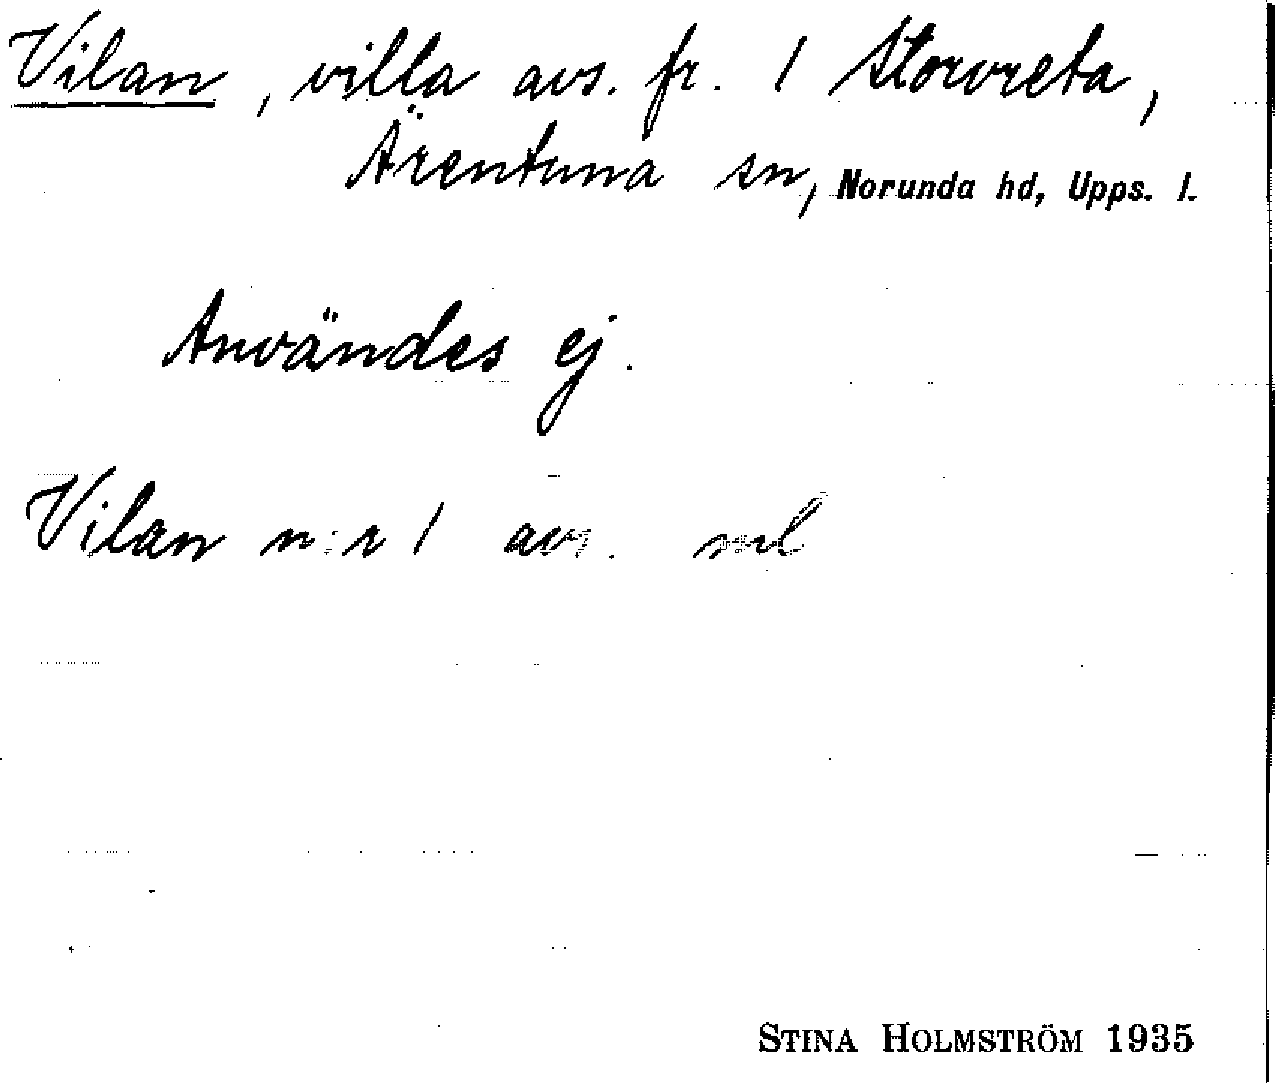 Vilan, villa avs. fr. 1 Storvreta,
Ärentuna sn, Norunda hd, Upps. l.
Användes ej.
Vilan n:r 1 avs. ml
STINA HOLMSTRÖM 1935